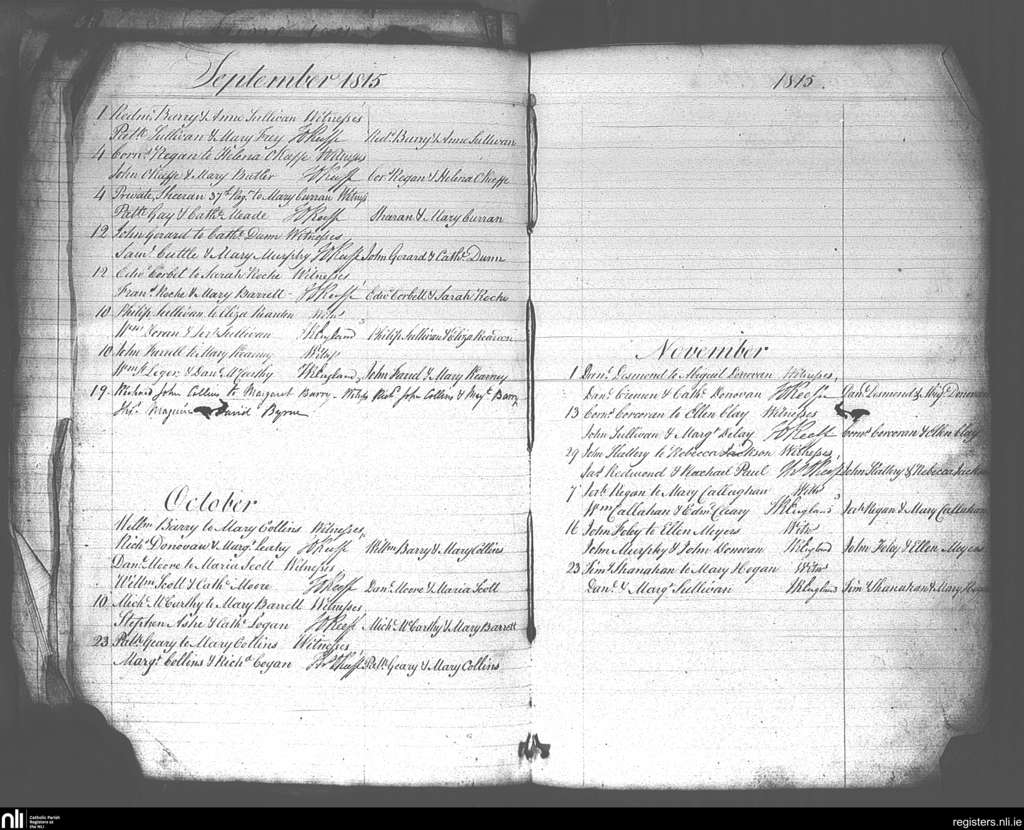 September 1815
1 Redmd Barry & Anne Sullivan Witnesses
Patk Sullivan & Mary Frey JOKeeffe Redd Barry & Anne Sullivan
4 Corns Regan to Helena OKeeffe Witnesses
John OKeeffe & Mary Butler JOKeeffe Cors Regan & Helena OKeeffe
4 Private, Sheeran 37th Regt to Mary Curran Witness
Patk Gay & Cathe Meade JOKeeffe Sharan & Mary Curran
12 John Gerard to Cathe Dunn Witnesses
Saml Cuttle & Mary Murphy JOKeeffe John Gerard & Cathe Dunn
12 Edwd Corbet to Sarah Roche Witnesses
Frans Roche & Mary Barrett JOKeeffe Edwd Corbett & Sarah Roche
10 Philip Sullivan to Eliza Witns
Wm Doran & Jerh Sullivan TREngland Philip Sullivan & Eliza
10 John to Mary Kearney Witns
Wm St Leger & Danl McCarthy TREngland John & Mary Kearney
19 Richard John Collins to Margaret Barry. Witness Richd John Collins & Margt Barry
Thos Maguire David Byrne
October
Willm Barry to Mary Collins Witnesses
Richd Donovan & Margt Leahy JOKeeffe Willm Barry & Mary Collins
Danl Moore to Maria Scott Witnesses
Willm Scott & Cathe Moore JOKeeffe Danl Moore & Maria Scott
10 Michl McCarthy to Mary Barrett Witnesses
Stephen Ashe & Cathe Logan JOKeeffe Michl McCarthy & Mary Barrett
23 Patk Geary to Mary Collins Witnesses
Margt Collins & Richd Cogan JOKeeffe Patk Geary & Mary Collins
1815.
November
1 Danl Desmond to Abigail Donovan Witnesses
Danl & Cathe Donovan JOKeeffe Danl Desmond & Abigl Donovan
13 Corns Corcoran to Ellen Clay Witnesses
John Sullivan & Margt Delay JOKeeffe Corns Corcoran & Ellen Clay
29 John Hallery to Rebecca Jackson Witnesses
Jas Redmond & Rachael Paul JOKeeffe John Hallery & Rebecca Jackson
7 Jerh Regan to Mary Callaghan Witns
Wm Callahan & Edwd Creary TREngland Jerh Regan & Mary Callahan
16 John Foley to Ellen Meyers Witns
John Murphy & John Donovan TREngland John Foley & Ellen Meyers
23 Timy Shanahan to Mary Hogan Witns
Danl & Margt Sullivan TREngland Timy Shanahan & Mary Hogan
nli Catholic Parish Registers at the NLI
registers.nli.ie